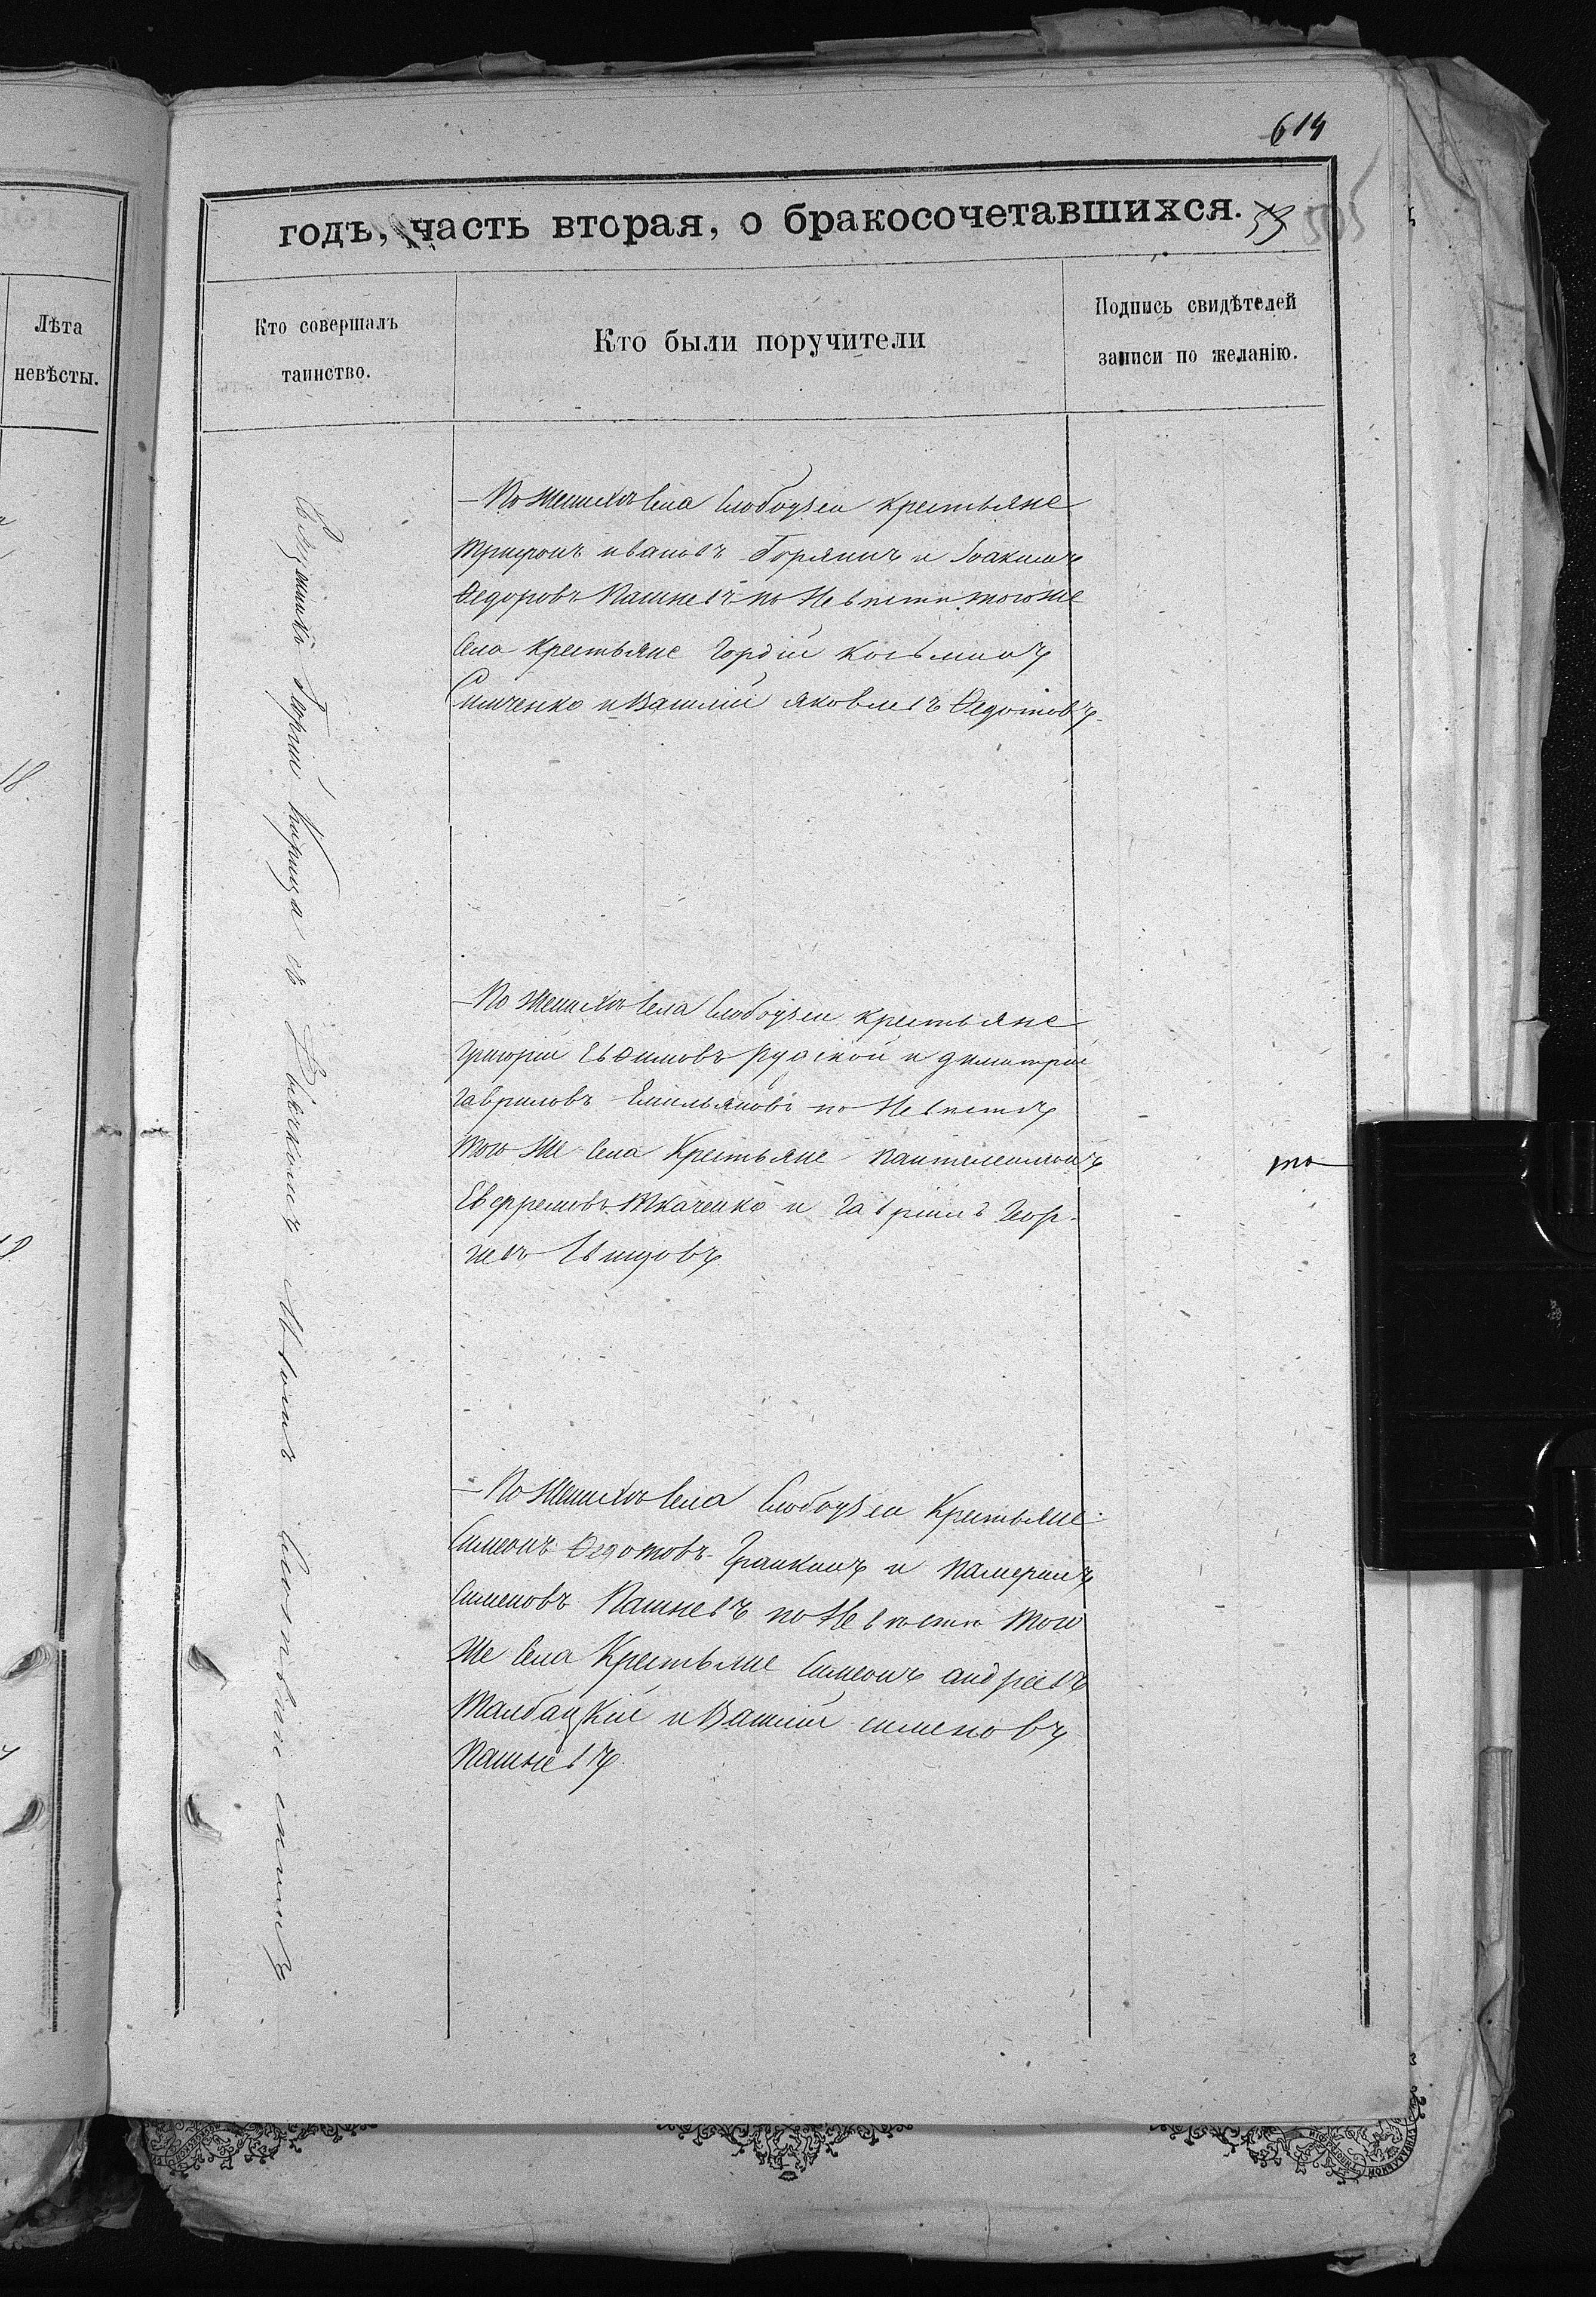 614
годъ, часть вторая, о бракосочетавшихся.
59 505
Лѣта
невѣсты.
Кто совершалъ
таинство.
Кто были поручители
Подпись свидѣтелей
записи по желанію.
18.
Священникъ Георгій с Дьячкомъ
– По женихѣ села Слободзеи крестьяне
Трифонъ ивановъ Горянинъ и Іоакимъ
Ѳедоровъ Пашневъ по невѣстѣ тогоже
села крестьяне Гордій Косьминъ
Симченко и Василій яковлевъ Ѳедотовъ.
– По женихѣ села Слободзеи крестьяне
Григорій Евѳимовъ Рудской и димитрій
Гавриловъ Емильяновъ по невѣстѣ
того же села Крестьяне Пантелеимонъ
Евфремовъ Ткаченко и Гавріилъ Геор-
гіевъ
– По женихѣ села Слободзеи Крестьяне
Симеонъ Ѳедотовъ Гранкинъ и
Сименовъ Пашневъ по невѣстѣ того
же села Крестьяне Симеонъ андреевъ
и Василій сименовъ
Пашневъ